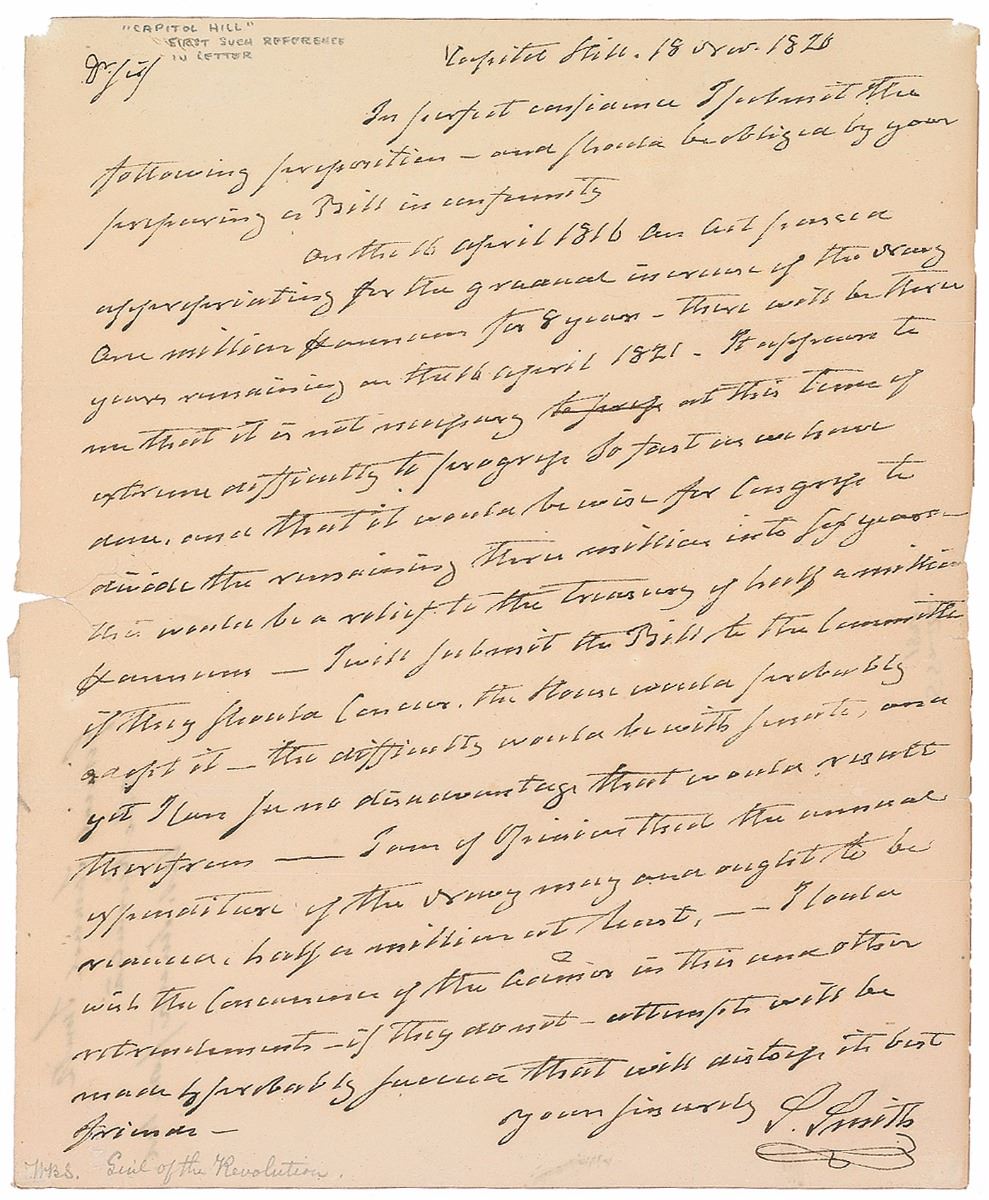 "CAPITOL HILL"
FIRST SUCH REFERENCE
IN LETTER
Dr Sir
Capitol Hill. 18 Nov. 1820
In perfect confidence I submit the
following proposition – and should be obliged by your
preparing a Bill in conformity
On the 16 April 1816 An Act passed
appropriating for the gradual increase of the Navy
One million pr annum for 8 years – there will be three
years remaining on the 16 April 1821 – It appears to
me that it is not necessary at this time of
extreme difficulty to progress So fast as we have
done, and that it would be wise for Congress to
divide the remaining three million into Six years –
this would be a relief to the treasury of half a million
pr annum — I will submit the Bill to the Committee
if they should Concur. the House would probably
adopt it – the difficulty would be with Senate, and
yet I can see no disadvantage that would result
therefrom —— I am of Opinion that the annual
expenditure of the Navy may and ought to be
reduced, half a million at least, – – I could
wish the Concurrence of the in this and other
retrenchments – if they do not – attempts will be
made & probably succeed that will distress its best
friends –
Yours sincerely S. Smith
WBS. Genl of the Revolution.